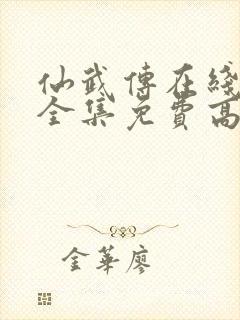 仙武傳在綫
全集免費高
金華廖